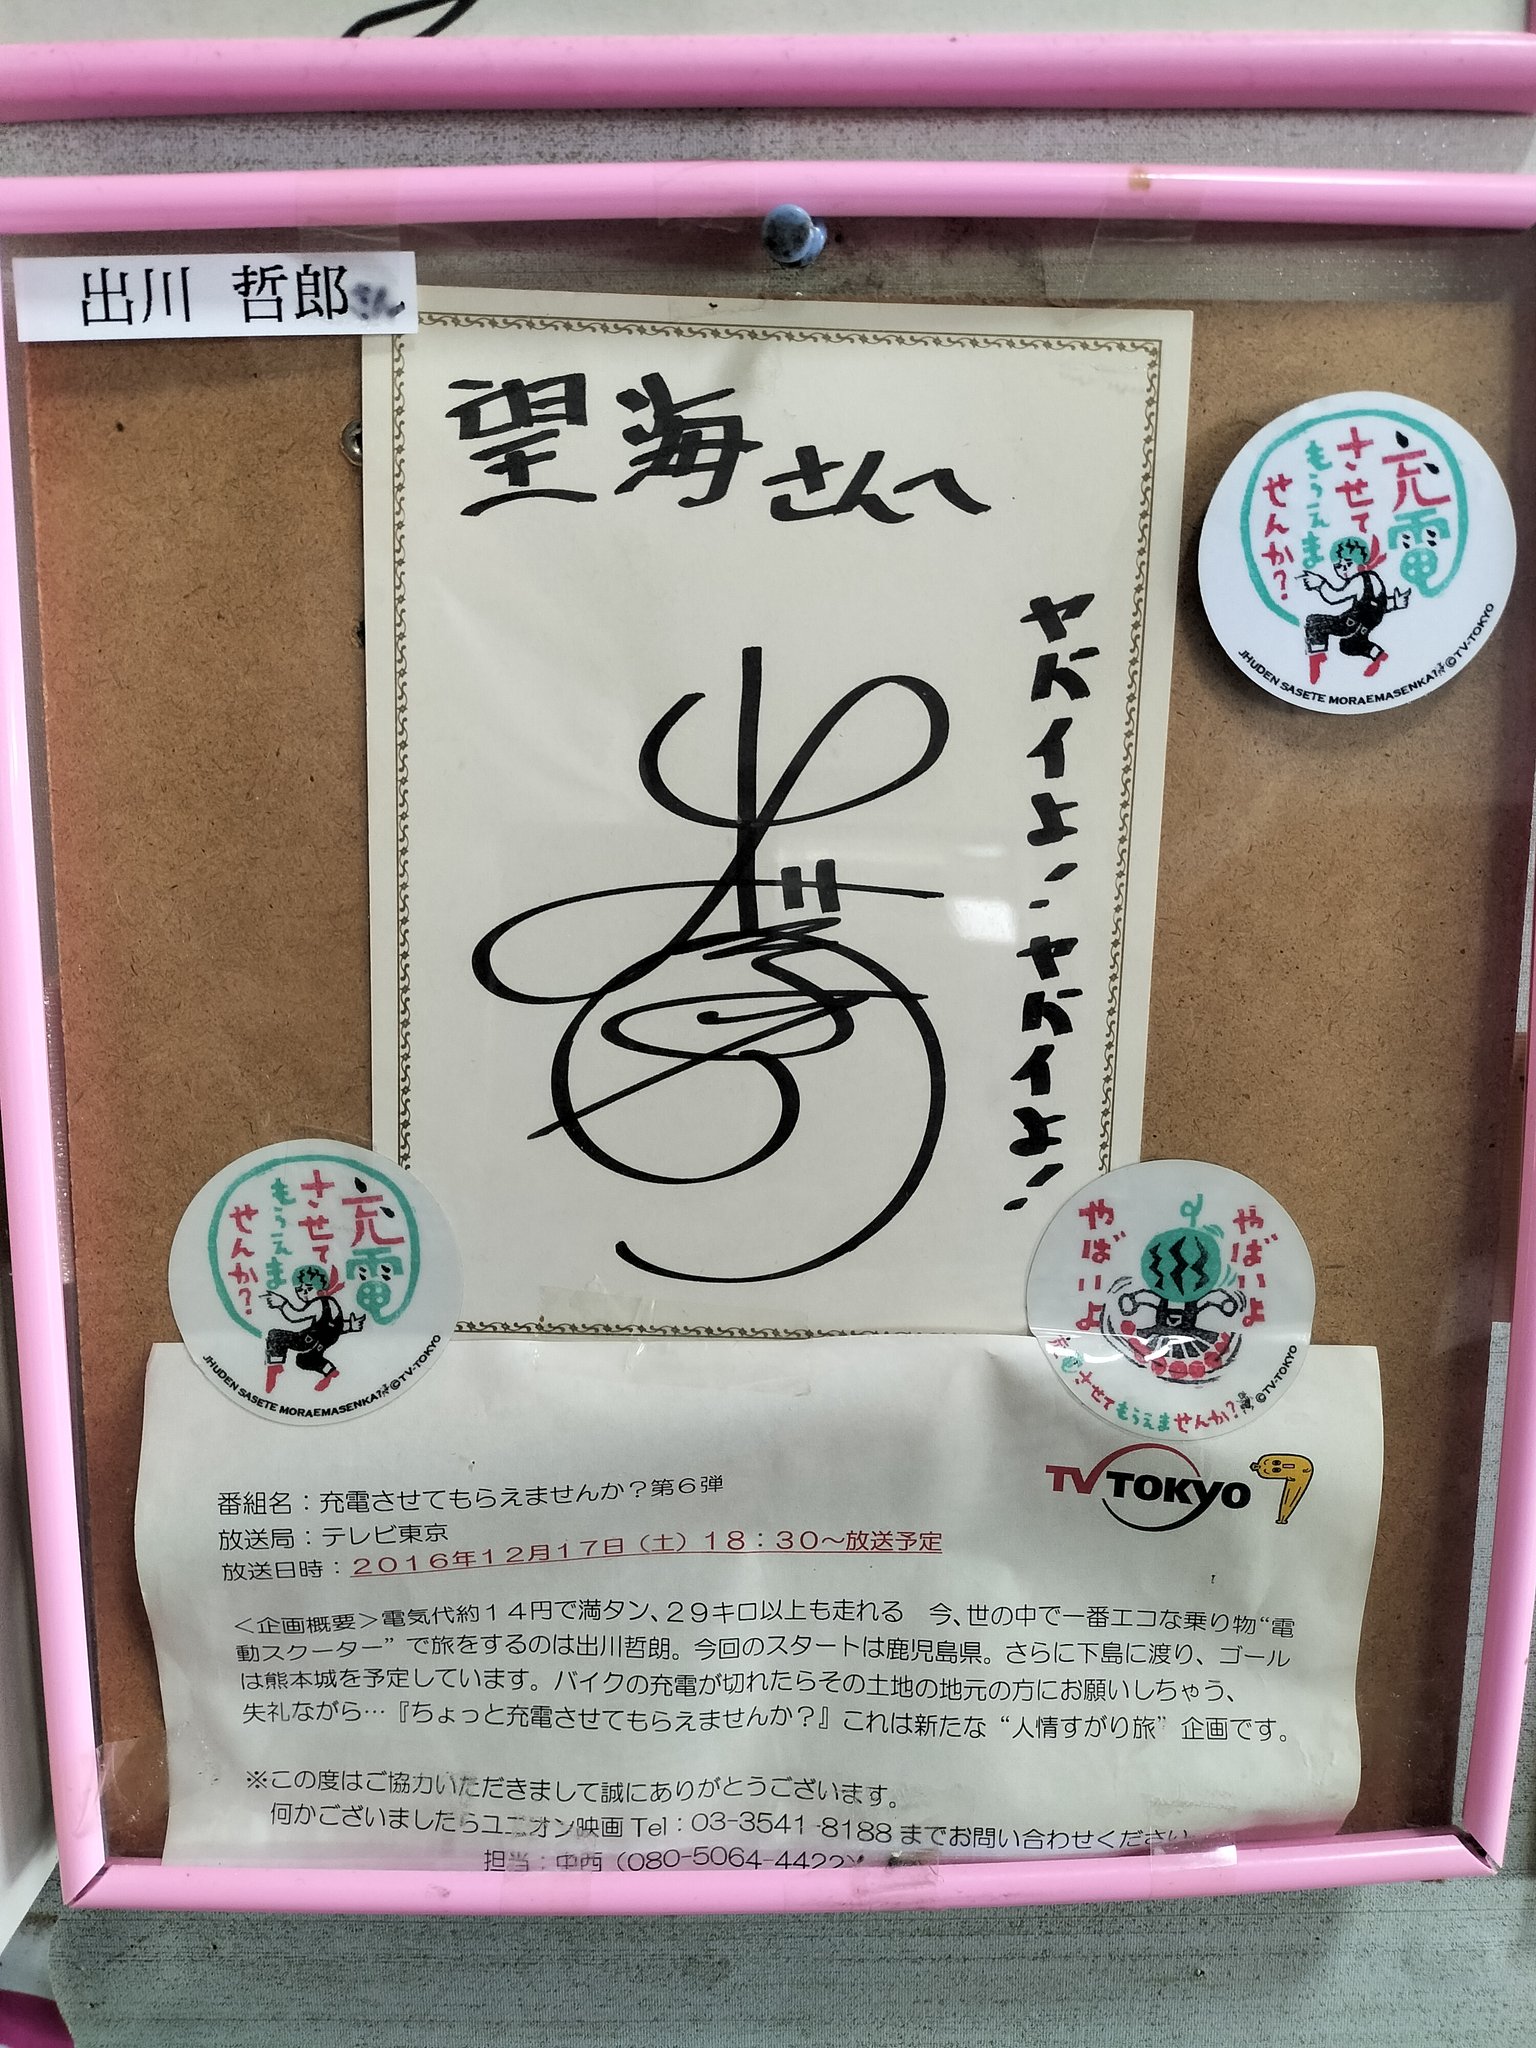 出川 哲郎さん
望海さんへ
ヤバイよ、ヤバイよ!!
充電
させて
もらえま
せんか?
JHUDEN SASETE MORAEMASENKA? ©TV-TOKYO
充電
させて
もらえま
せんか?
JHUDEN SASETE MORAEMASENKA? ©TV-TOKYO
やばいよ
やばいよ
充電させてもらえませんか? ©TV-TOKYO
TV TOKYO
番組名:充電させてもらえませんか?第6弾
放送局:テレビ東京
放送日時:2016年12月17日(土)18:30〜放送予定
<企画概要>電気代約14円で満タン、29キロ以上も走れる 今、世の中で一番エコな乗り物“電
動スクーター”で旅をするのは出川哲朗。今回のスタートは鹿児島県。さらに下島に渡り、ゴール
は熊本城を予定しています。バイクの充電が切れたらその土地の地元の方にお願いしちゃう、
失礼ながら…『ちょっと充電させてもらえませんか?』これは新たな“人情すがり旅”企画です。
※この度はご協力いただきまして誠にありがとうございます。
何かございましたらユニオン映画 Tel:03-3541-8188 までお問い合わせください
担当:中西(080-5064-4422)